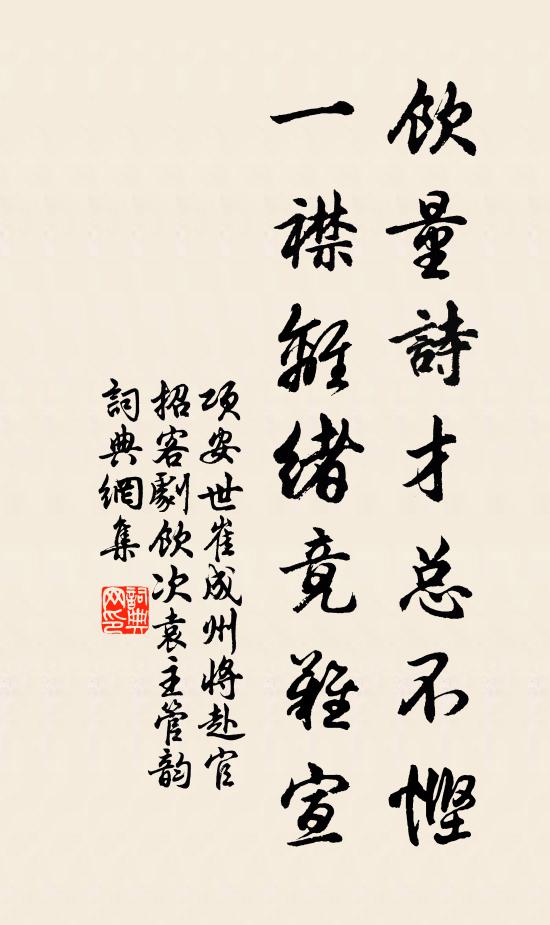 飲量詩才总不慳
一襟離緒竟難宣
项安世崔成州将赴官
招客劇飲次袁主管韵
詞典網集
詞典网印